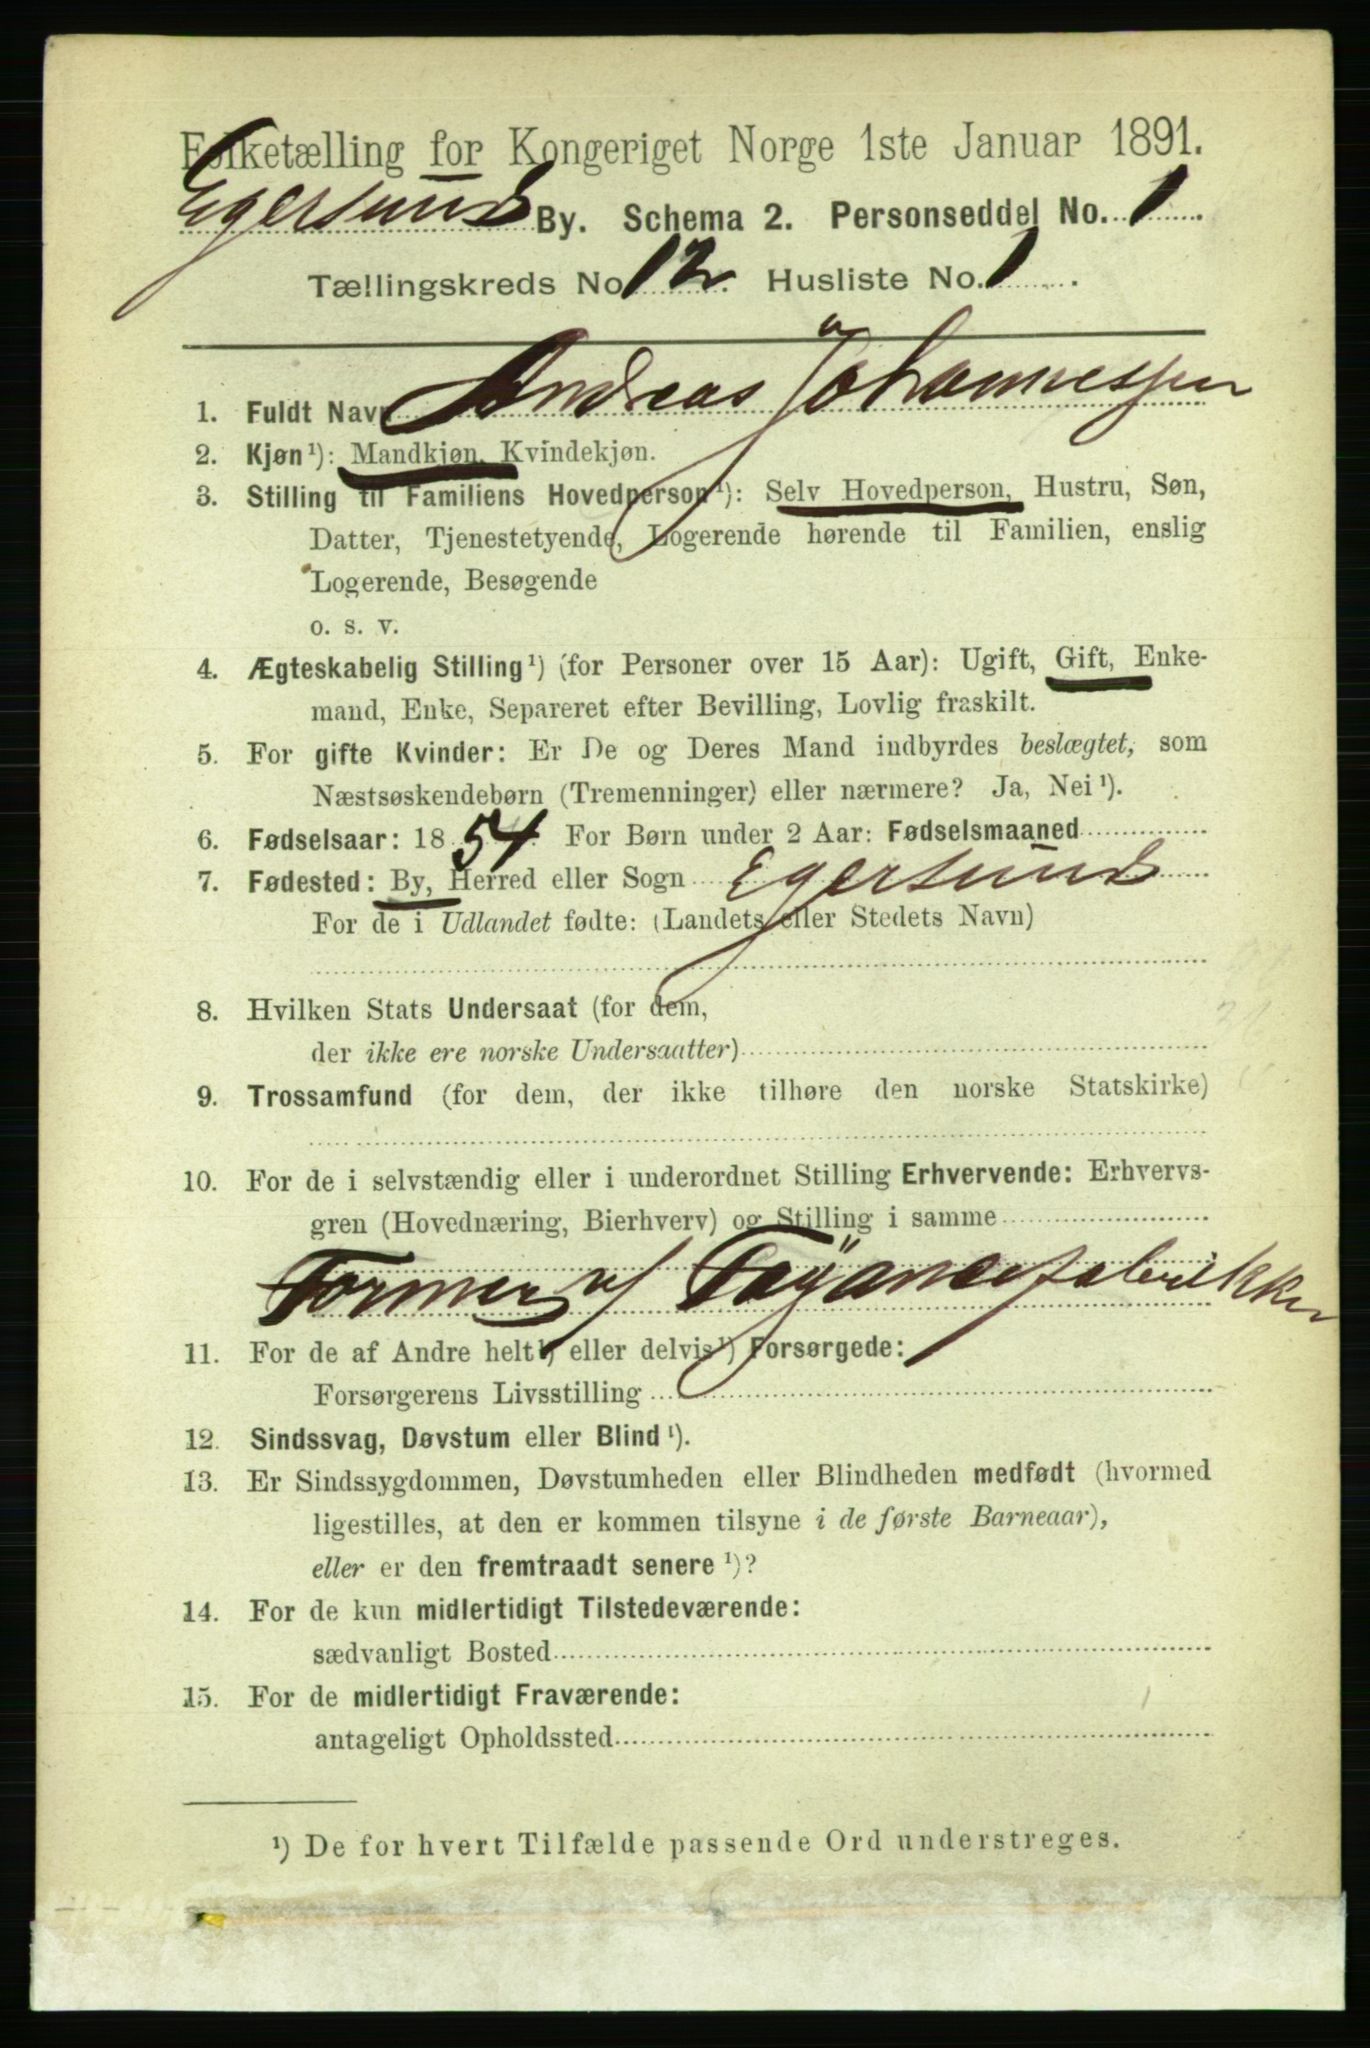 Folketælling for Kongeriget Norge 1ste Januar 1891.
Egersund By. Schema 2. Personseddel No. 1.
Tællingskreds No. 12. Husliste No. 1.
1. Fuldt Navn Andreas Johannessen
2. Kjøn ¹): Mandkjøn, Kvindekjøn.
3. Stilling til Familiens Hovedperson ¹): Selv Hovedperson, Hustru, Søn,
Datter, Tjenestetyende, Logerende hørende til Familien, enslig
Logerende, Besøgende
o. s. v.
4. Ægteskabelig Stilling ¹) (for Personer over 15 Aar): Ugift, Gift, Enke-
mand, Enke, Separeret efter Bevilling, Lovlig fraskilt.
5. For gifte Kvinder: Er De og Deres Mand indbyrdes beslægtet, som
Næstsøskendebørn (Tremenninger) eller nærmere? Ja, Nei ¹).
6. Fødselsaar: 1854. For Børn under 2 Aar: Fødselsmaaned
7. Fødested: By, Herred eller Sogn Egersund
For de i Udlandet fødte: (Landets eller Stedets Navn)
8. Hvilken Stats Undersaat (for dem,
der ikke ere norske Undersaatter)
9. Trossamfund (for dem, der ikke tilhøre den norske Statskirke)
10. For de i selvstændig eller i underordnet Stilling Erhvervende: Erhvervs-
gren (Hovednæring, Bierhverv) og Stilling i samme
Former af Fayancefabrikken
11. For de af Andre helt ¹) eller delvis ¹) Forsørgede:
Forsørgerens Livsstilling
12. Sindssvag, Døvstum eller Blind ¹).
13. Er Sindssygdommen, Døvstumheden eller Blindheden medfødt (hvormed
ligestilles, at den er kommen tilsyne i de første Barneaar),
eller er den fremtraadt senere ¹)?
14. For de kun midlertidigt Tilstedeværende:
sædvanligt Bosted
15. For de midlertidigt Fraværende:
antageligt Opholdssted
¹) De for hvert Tilfælde passende Ord understreges.